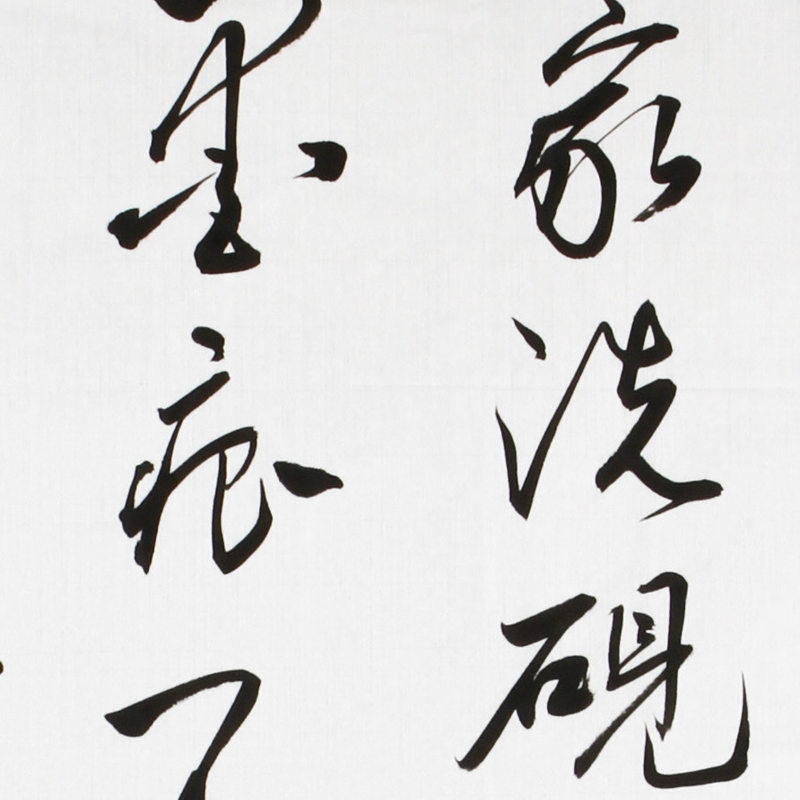 家洗硯
墨痕